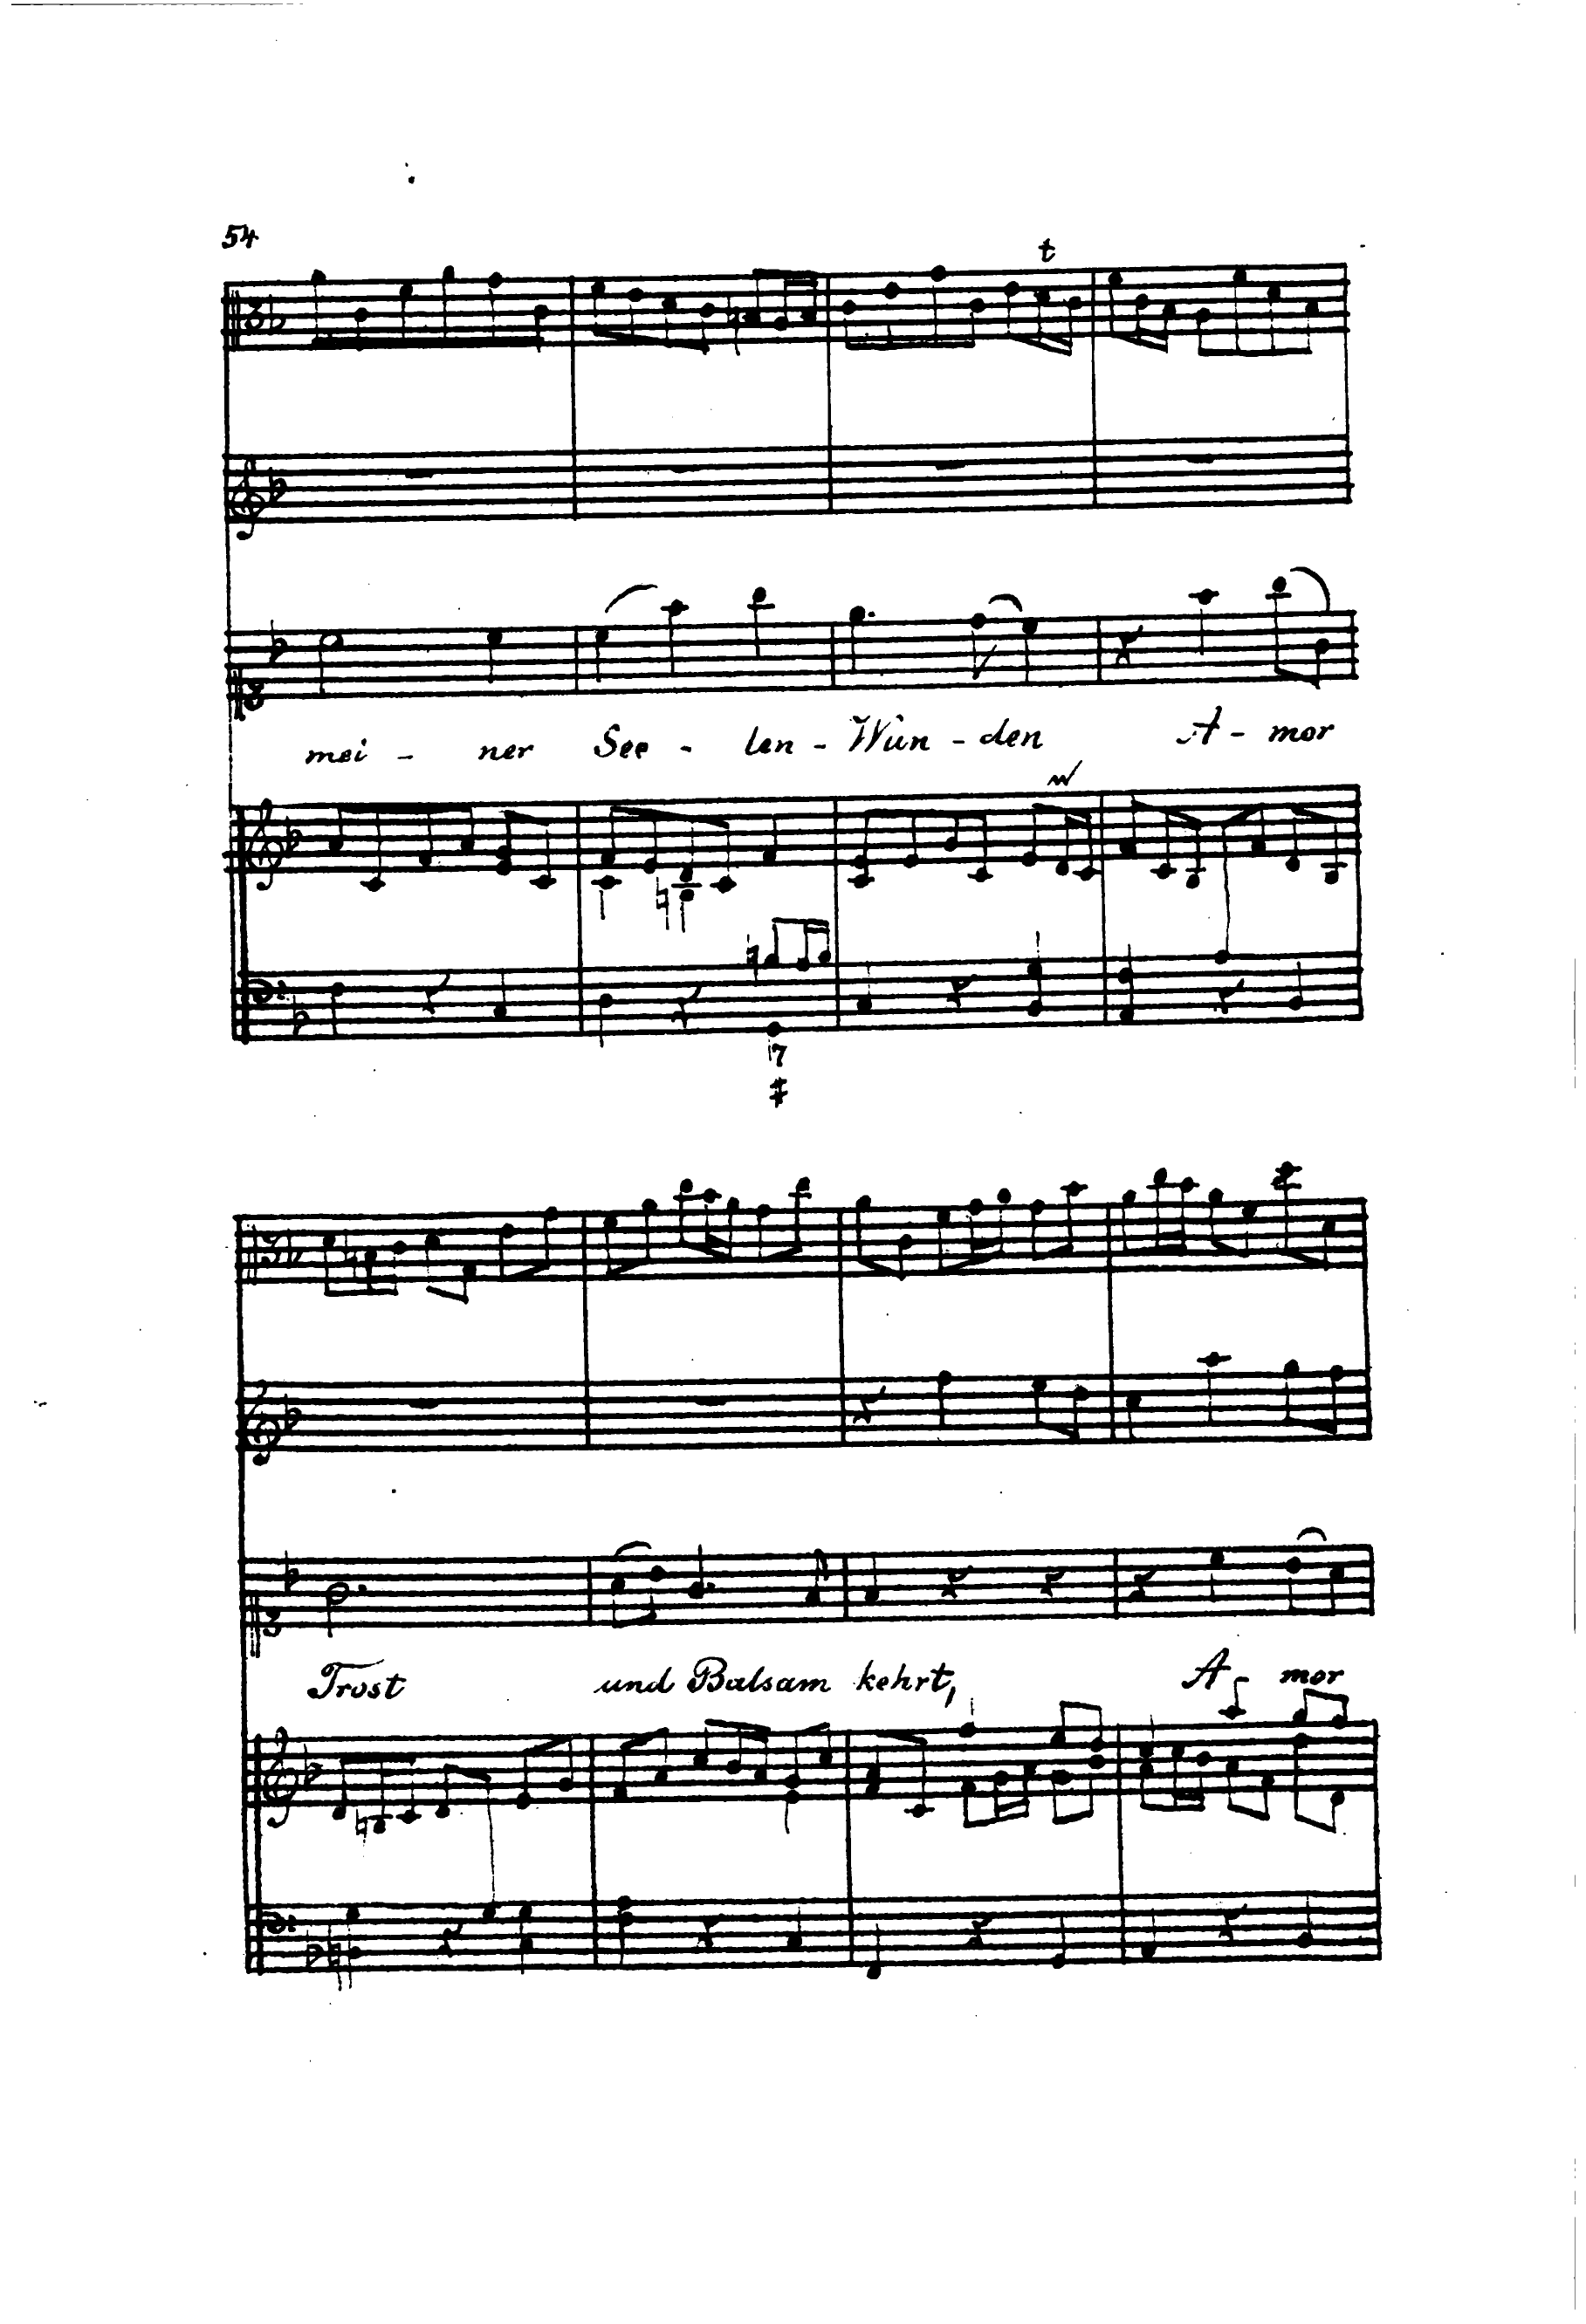 54
t
mei - ner See - len - Wün - den A - mor
7
#
Trost und Balsam kehrt, A mor